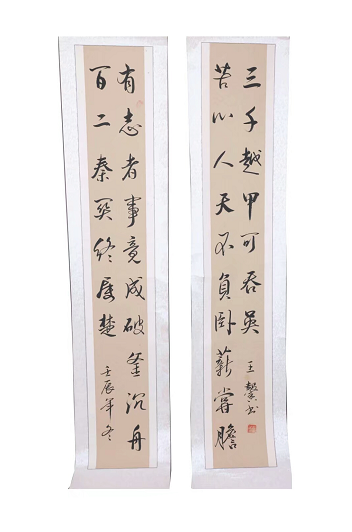 有志者事竟成破釜沉舟
百二秦关终属楚
壬辰年冬
苦心人天不負卧薪嘗膽
三千越甲可吞吴
王馨书